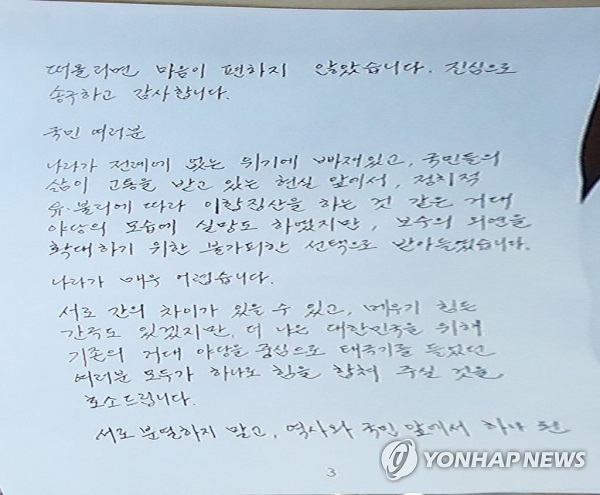 떠올리면 마음이 편하지 않았습니다. 진심으로
송구하고 감사합니다.
국민 여러분
나라가 전례없는 위기에 빠져있고, 국민들의
삶이 고통을 받고 있는 현실 앞에서, 정치적
유·불리에 따라 이합집산을 하는 것 같은 거대
야당의 모습에 실망도 하였지만, 보수의 외연을
확대하기 위한 불가피한 선택으로 받아들였습니다.
나라가 매우 어렵습니다.
서로 간의 차이가 있을 수 있고, 메우기 힘든
간극도 있겠지만, 더 나은 대한민국을 위해
기존의 거대 야당을 중심으로 태극기를 들었던
여러분 모두가 하나로 힘을 합쳐 주실 것을
호소드립니다.
서로 분열하지 말고, 역사와 국민 앞에서 하나 된
3
YONHAP NEWS